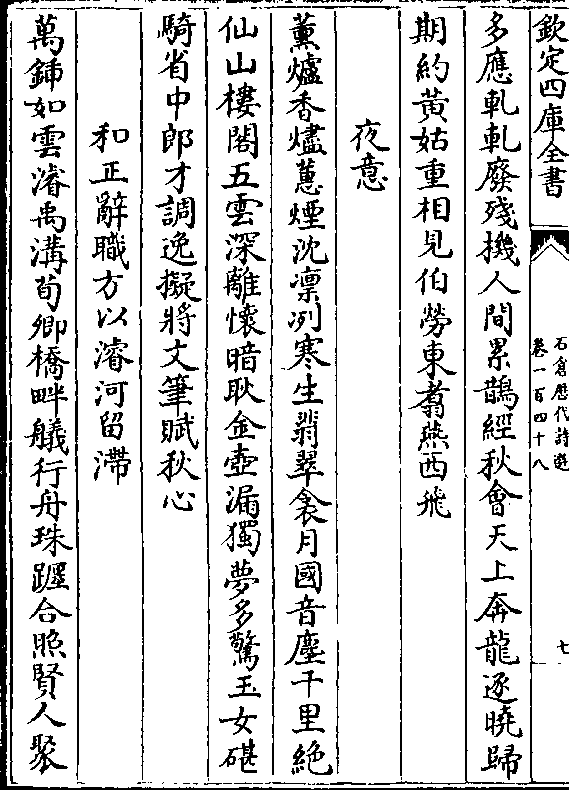 欽定四庫全書
石倉歷代詩選
卷一百四十八
七
多應軋軋廢殘機人間累鵲經秋會天上奔龍逐曉歸
期約黃姑重相見伯勞東翥燕西飛
夜意
薰爐香燼蕙煙沈凛冽寒生翡翠衾月國音塵千里絶
仙山樓閣五雲深離懷暗耿金壺漏獨夢多驚玉女碪
騎省中郎才調逸擬將文筆賦秋心
和正辭職方以濬河留滯
萬鍤如雲濬禹溝荀卿橋畔艤行舟珠躔合照賢人聚